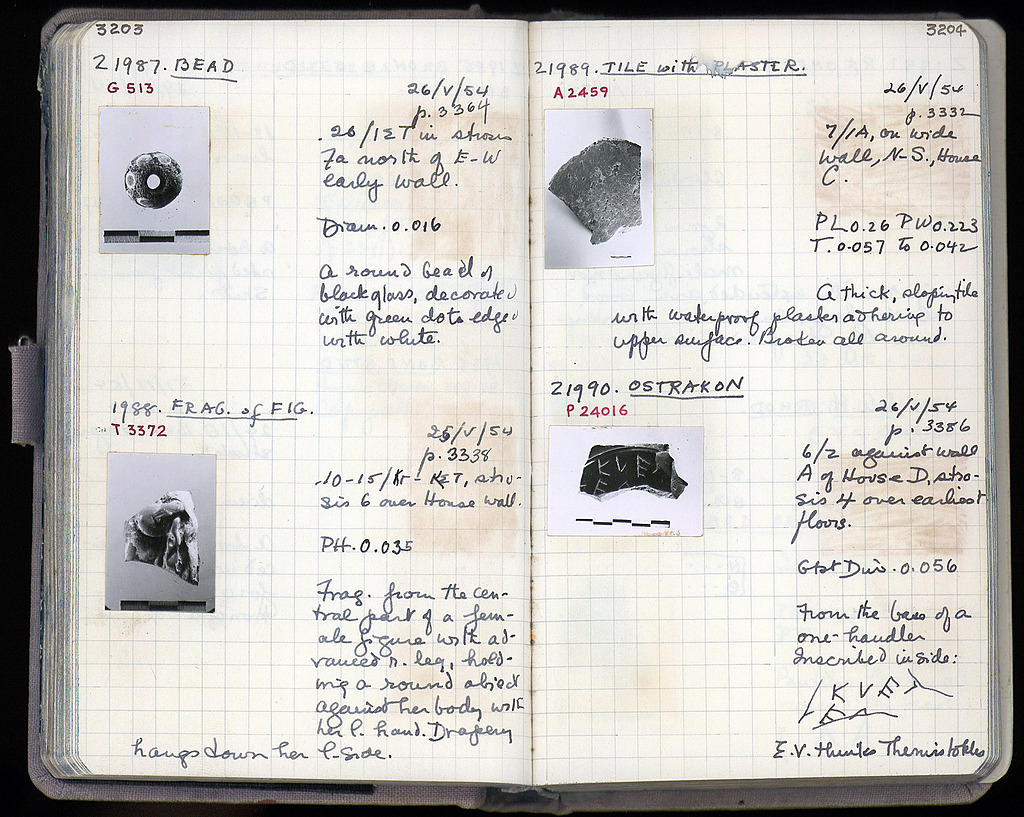 3203
21987. BEAD
G 513
26/V/54
p. 3364
20/ΙΣΤ in strosis
7a north of E-W
early wall.
Diam. 0.016
A round bead of
black glass, decorated
with green dots edged
with white.
1988. FRAG. of FIG.
T 3372
25/V/54
p. 3338
10-15/
ΚΣΤ, stro-
sis 6 over House wall.
PH. 0.035
Frag. from the cen-
tral part of a fem-
ale figure with ad-
vanced r. leg, hold-
ing a round object
against her body with
her l. hand. Drapery
hangs down her l. side.
3204
21989. TILE with PLASTER.
A 2459
26/V/54
p. 3332
7/ΙΑ, on wide
wall, N-S., House
C.
PL 0.26 PW 0.223
T. 0.057 to 0.042
A thick, sloping tile
with waterproof plaster adhering to
upper surface. Broken all around.
21990. OSTRAKON
P 24016
26/V/54
p. 3386
6/2 against wall
A of House D, stro-
sis 4 over earliest
floors.
Gtst Dim. 0.056
From the base of a
one-handler
Inscribed inside:
E.V. thinks Themistokles